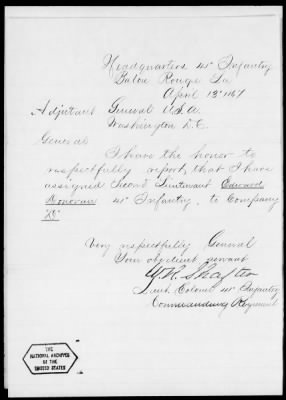 Headquarters 41st Infantry
Baton Rouge La
April 13th 1867
Adjutant General U.S.A.
Washington D.C.
General
I have the honor to
respectfully report, that I have
assigned Second Lieutenant Edward
Donovan 41st Infantry, to Company
Very respectfully General
Your obedient servant
W.R. Shafter
Lieut. Colonel 41st Infantry
Commanding Regiment
THE
NATIONAL ARCHIVES
OF THE
UNITED STATES